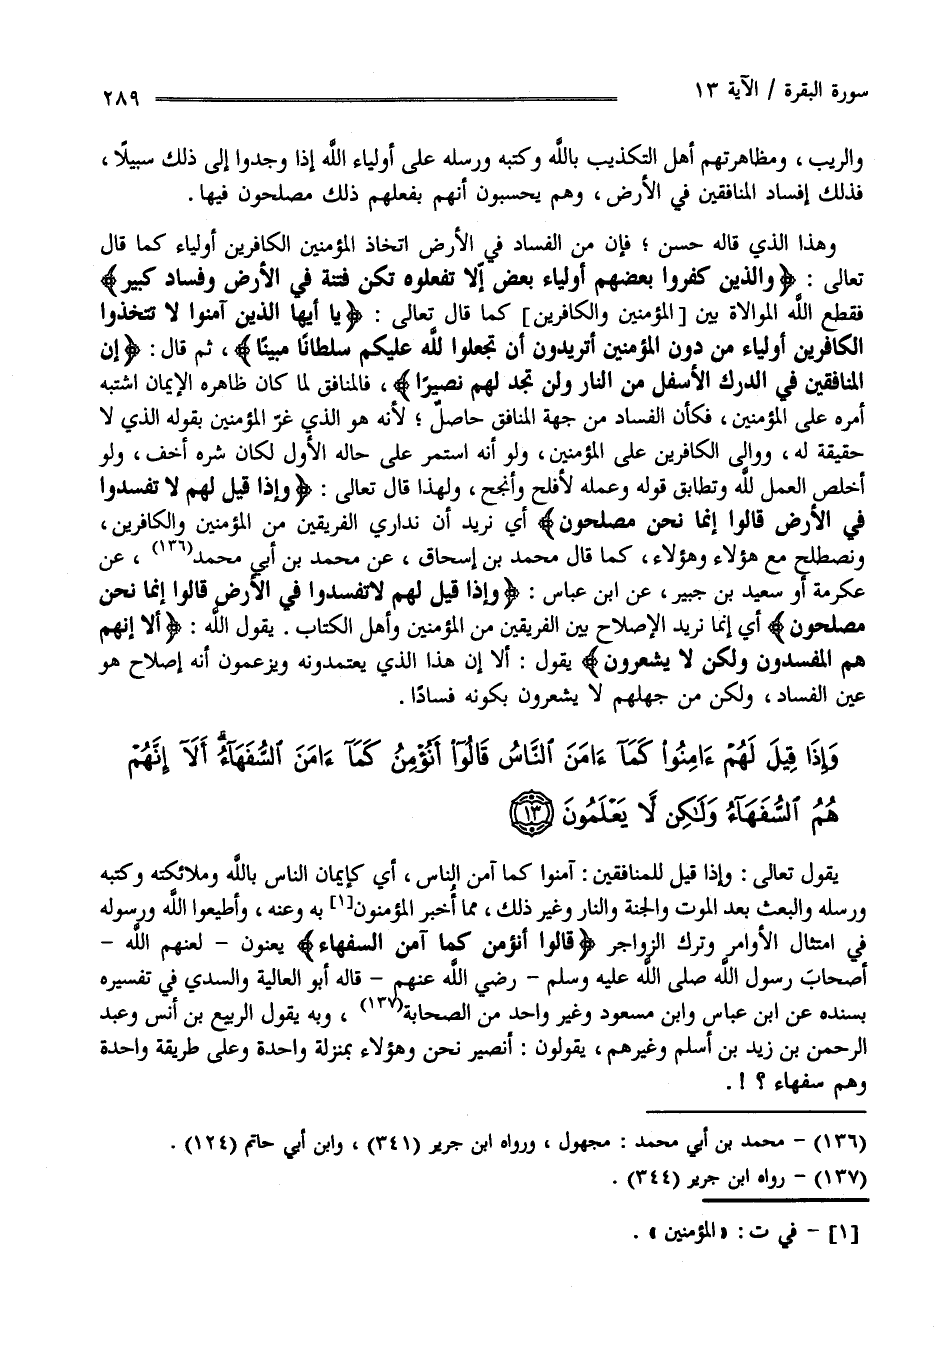 سورة البقرة / الآية ١٣ ٢٨٩
والريب ، ومظاهرتهم أهل التكذيب بالله وكتبه ورسله على أولياء الله إذا وجدوا إلى ذلك سبيلًا ،
فذلك إفساد المنافقين في الأرض ، وهم يحسبون أنهم بفعلهم ذلك مصلحون فيها .
وهذا الذي قاله حسن ؛ فإن من الفساد في الأرض اتخاذ المؤمنين الكافرين أولياء كما قال
تعالى : ﴿ والذين كفروا بعضهم أولياء بعض إلّا تفعلوه تكن فتنة في الأرض وفساد كبير ﴾
فقطع الله الموالاة بين [ المؤمنين والكافرين ] كما قال تعالى : ﴿ يا أيها الذين آمنوا لا تتخذوا
الكافرين أولياء من دون المؤمنين أتريدون أن تجعلوا لله عليكم سلطانًا مبينًا ﴾ ، ثم قال : ﴿ إن
المنافقين في الدرك الأسفل من النار ولن تجد لهم نصيرًا ﴾ ، فالمنافق لما كان ظاهره الإيمان اشتبه
أمره على المؤمنين ، فكأن الفساد من جهة المنافق حاصلٌ ؛ لأنه هو الذي غرّ المؤمنين بقوله الذي لا
حقيقة له ، ووالى الكافرين على المؤمنين ، ولو أنه استمر على حاله الأول لكان شره أخف ، ولو
أخلص العمل لله وتطابق قوله وعمله لأفلح وأنجح ، ولهذا قال تعالى : ﴿ وإذا قيل لهم لا تفسدوا
في الأرض قالوا إنما نحن مصلحون ﴾ أي نريد أن نداري الفريقين من المؤمنين والكافرين ،
ونصطلح مع هؤلاء وهؤلاء ، كما قال محمد بن إسحاق ، عن محمد بن أبي محمد(١٣٦) ، عن
عكرمة أو سعيد بن جبير ، عن ابن عباس : ﴿ وإذا قيل لهم لاتفسدوا في الأرض قالوا إنما نحن
مصلحون ﴾ أي إنما نريد الإصلاح بين الفريقين من المؤمنين وأهل الكتاب . يقول الله : ﴿ ألا إنهم
هم المفسدون ولكن لا يشعرون ﴾ يقول : ألا إن هذا الذي يعتمدونه ويزعمون أنه إصلاح هو
عين الفساد ، ولكن من جهلهم لا يشعرون بكونه فسادًا .
وَإِذَا قِيلَ لَهُمْ ءَامِنُوا۟ كَمَآ ءَامَنَ ٱلنَّاسُ قَالُوٓا۟ أَنُؤْمِنُ كَمَآ ءَامَنَ ٱلسُّفَهَآءُ ۗ أَلَآ إِنَّهُمْ
هُمُ ٱلسُّفَهَآءُ وَلَٰكِن لَّا يَعْلَمُونَ ١٣
يقول تعالى : وإذا قيل للمنافقين : آمنوا كما آمن الناس ، أي كإيمان الناس بالله وملائكته وكتبه
ورسله والبعث بعد الموت والجنة والنار وغير ذلك ، مما أُخبر المؤمنون[١] به وعنه ، وأطيعوا الله ورسوله
في امتثال الأوامر وترك الزواجر ﴿ قالوا أنؤمن كما آمن السفهاء ﴾ يعنون - لعنهم الله -
أصحابَ رسول الله صلى الله عليه وسلم - رضي الله عنهم - قاله أبو العالية والسدي في تفسيره
بسنده عن ابن عباس وابن مسعود وغير واحد من الصحابة(١٣٧) ، وبه يقول الربيع بن أنس وعبد
الرحمن بن زيد بن أسلم وغيرهم ، يقولون : أنصير نحن وهؤلاء بمنزلة واحدة وعلى طريقة واحدة
وهم سفهاء ؟ ! .
(١٣٦) - محمد بن أبي محمد : مجهول ، ورواه ابن جرير (٣٤١) ، وابن أبي حاتم (١٢٤) .
(١٣٧) - رواه ابن جرير (٣٤٤) .
[١] - في ت : « المؤمنين » .